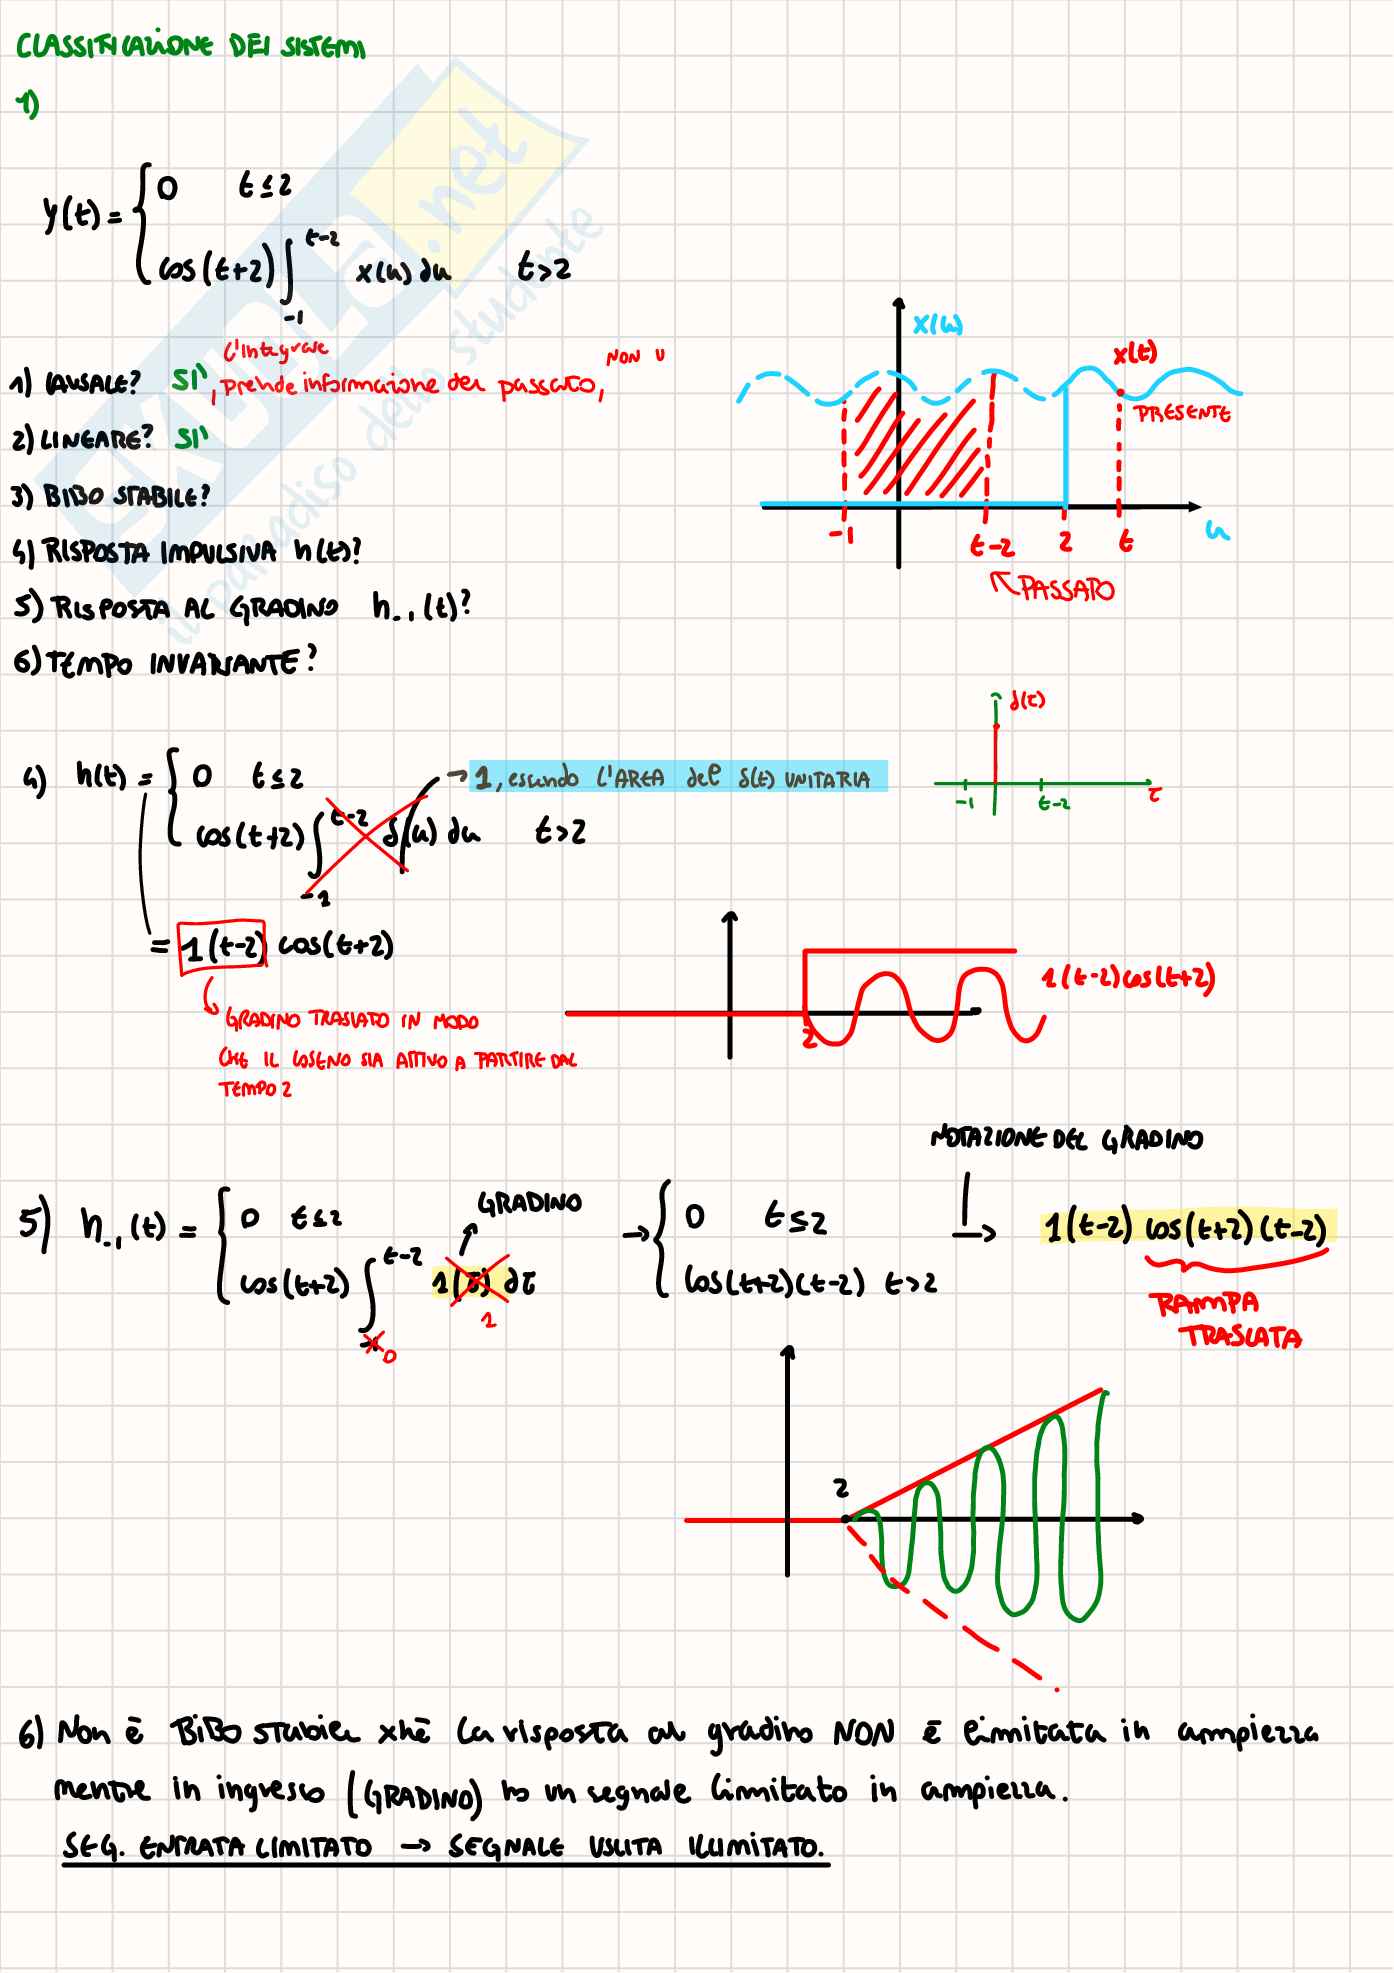 CLASSIFICAZIONE DEI SISTEMI
1)
y(t) = { 0 t ≤ 2
cos(t+2) ∫_{-1}^{t-2} x(u) du t > 2
1) CAUSALE? SI', L'integrale prende informazione del passato, NON U
2) LINEARE? SI'
3) BIBO STABILE?
4) RISPOSTA IMPULSIVA h(t)?
5) RISPOSTA AL GRADINO h₋₁(t)?
6) TEMPO INVARIANTE?
x(u)
x(t)
PRESENTE
-1 t-2 2 t u
PASSATO
4) h(t) = { 0 t ≤ 2
→ 1, essendo l'AREA del δ(t) UNITARIA
cos(t+2) ∫_{-1}^{t-2} δ(u) du t > 2
δ(τ)
-1 t-2 τ
= 1(t-2) cos(t+2)
GRADINO TRASLATO IN MODO
CHE IL COSENO SIA ATTIVO A PARTIRE DAL
TEMPO 2
2
1(t-2)cos(t+2)
NOTAZIONE DEL GRADINO
5) h₋₁(t) = { 0 t ≤ 2
GRADINO
cos(t+2) ∫_{-1}^{t-2} 1(τ) dτ
0
1
→ { 0 t ≤ 2
cos(t+2)(t-2) t > 2
→ 1(t-2) cos(t+2)(t-2)
RAMPA
TRASLATA
2
6) Non è BIBO stabile xhè la risposta al gradino NON è limitata in ampiezza
mentre in ingresso (GRADINO) ho un segnale limitato in ampiezza.
SEG. ENTRATA LIMITATO → SEGNALE USCITA ILLIMITATO.
SKUOLA.net
il paradiso dello studente